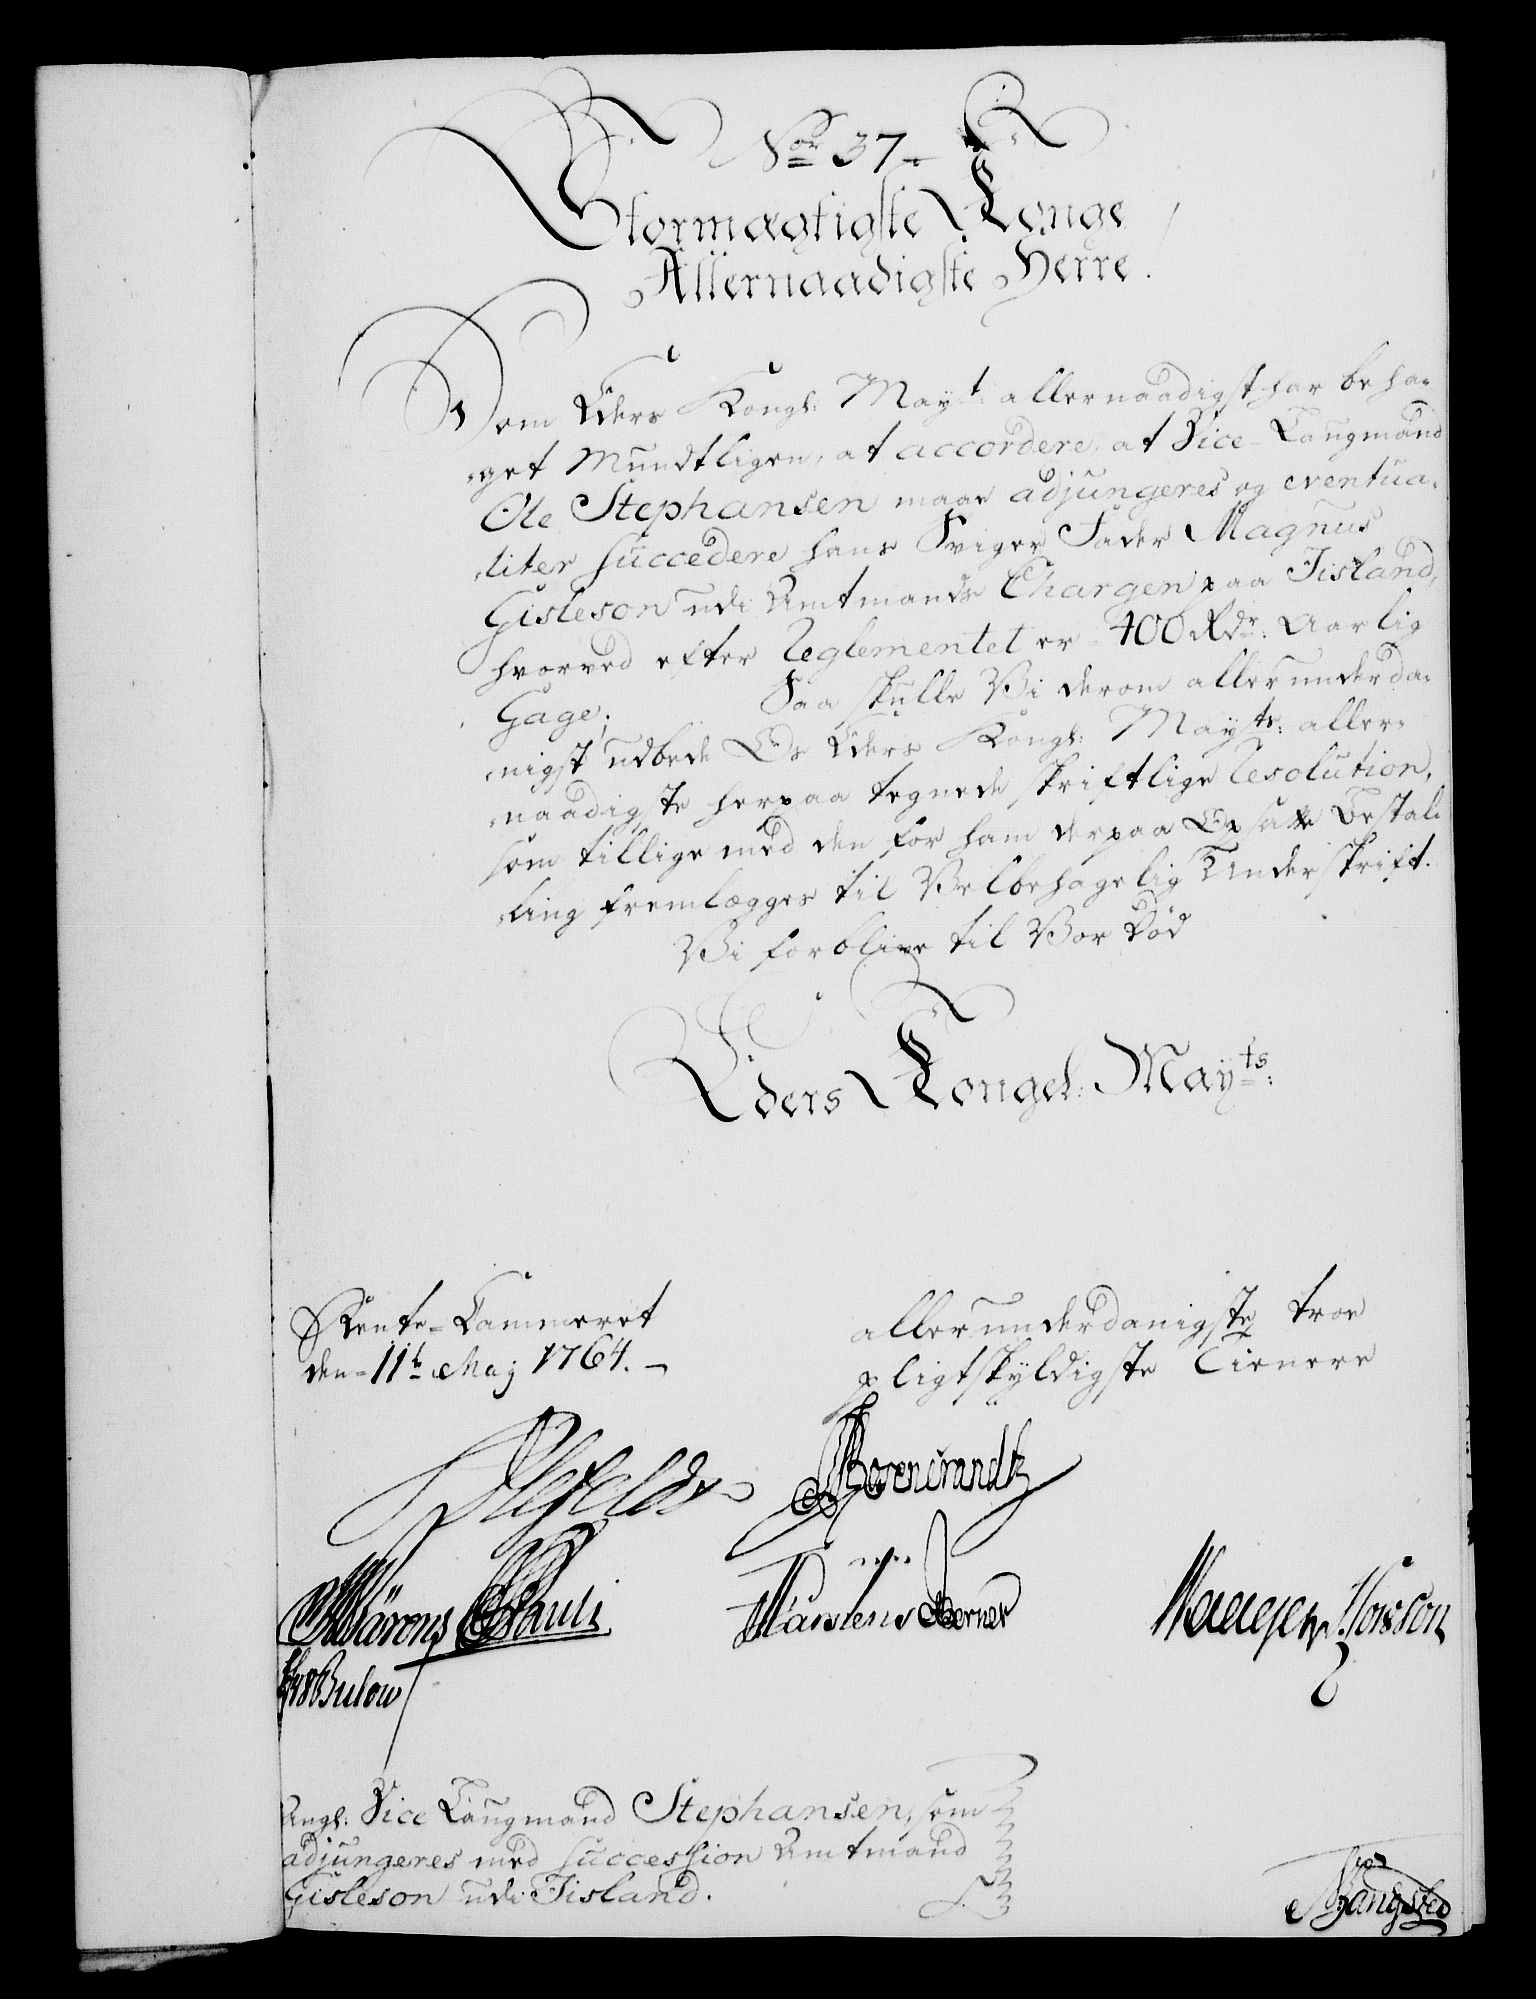 No 37.
Stormægtigste Konge
Allernaadigste Herre!
Som Eders Kongl: Mayt: allernaadigst har beha-
get Mundtligen, at accordere, at Vice-Laugmand
Ole Stephansen maae adjungeres og eventua-
liter Succedere hans Sviger Fader Magnus
Gisleson udi Amtmands Chargen paa Jisland,
hvorved efter Reglementet er 400 Rdr: Aarlig
Gage; Saa skulle Vi derom allerunderda-
nigst udbede Os Eders Kongl: Mayts: aller-
naadigste herpaa tegnede skriftlige Resolution,
som tillige med den for ham derpaa Opsatte Bestal-
ling fremlægges til Velbehagelig Underskrift.
Vi forblive til Vor Død
Eders Kongel: Mayts:
Rente-Cammeret
den 11te Maj 1764.
allerunderdanigste troe
pligtskyldigste Tienere
Ahlefeldt
Pauli
Martens Berner
Bulow
Angl: Vice Laugmand Stephansen, som
adjungeres med Succession Amtmand
Gisleson udi Jisland.